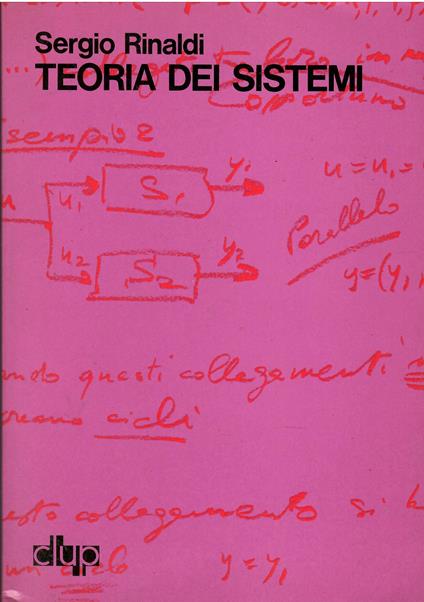 Sergio Rinaldi
TEORIA DEI SISTEMI
in
opportuno
esempio 2
u u₁ S₁ y₁ u = u₁ =
u₂ S₂ y₂ Parallelo
y = (y₁,
ando questi collegamenti
creano cicli
esto collegamento si
un ciclo y = y₁
clup